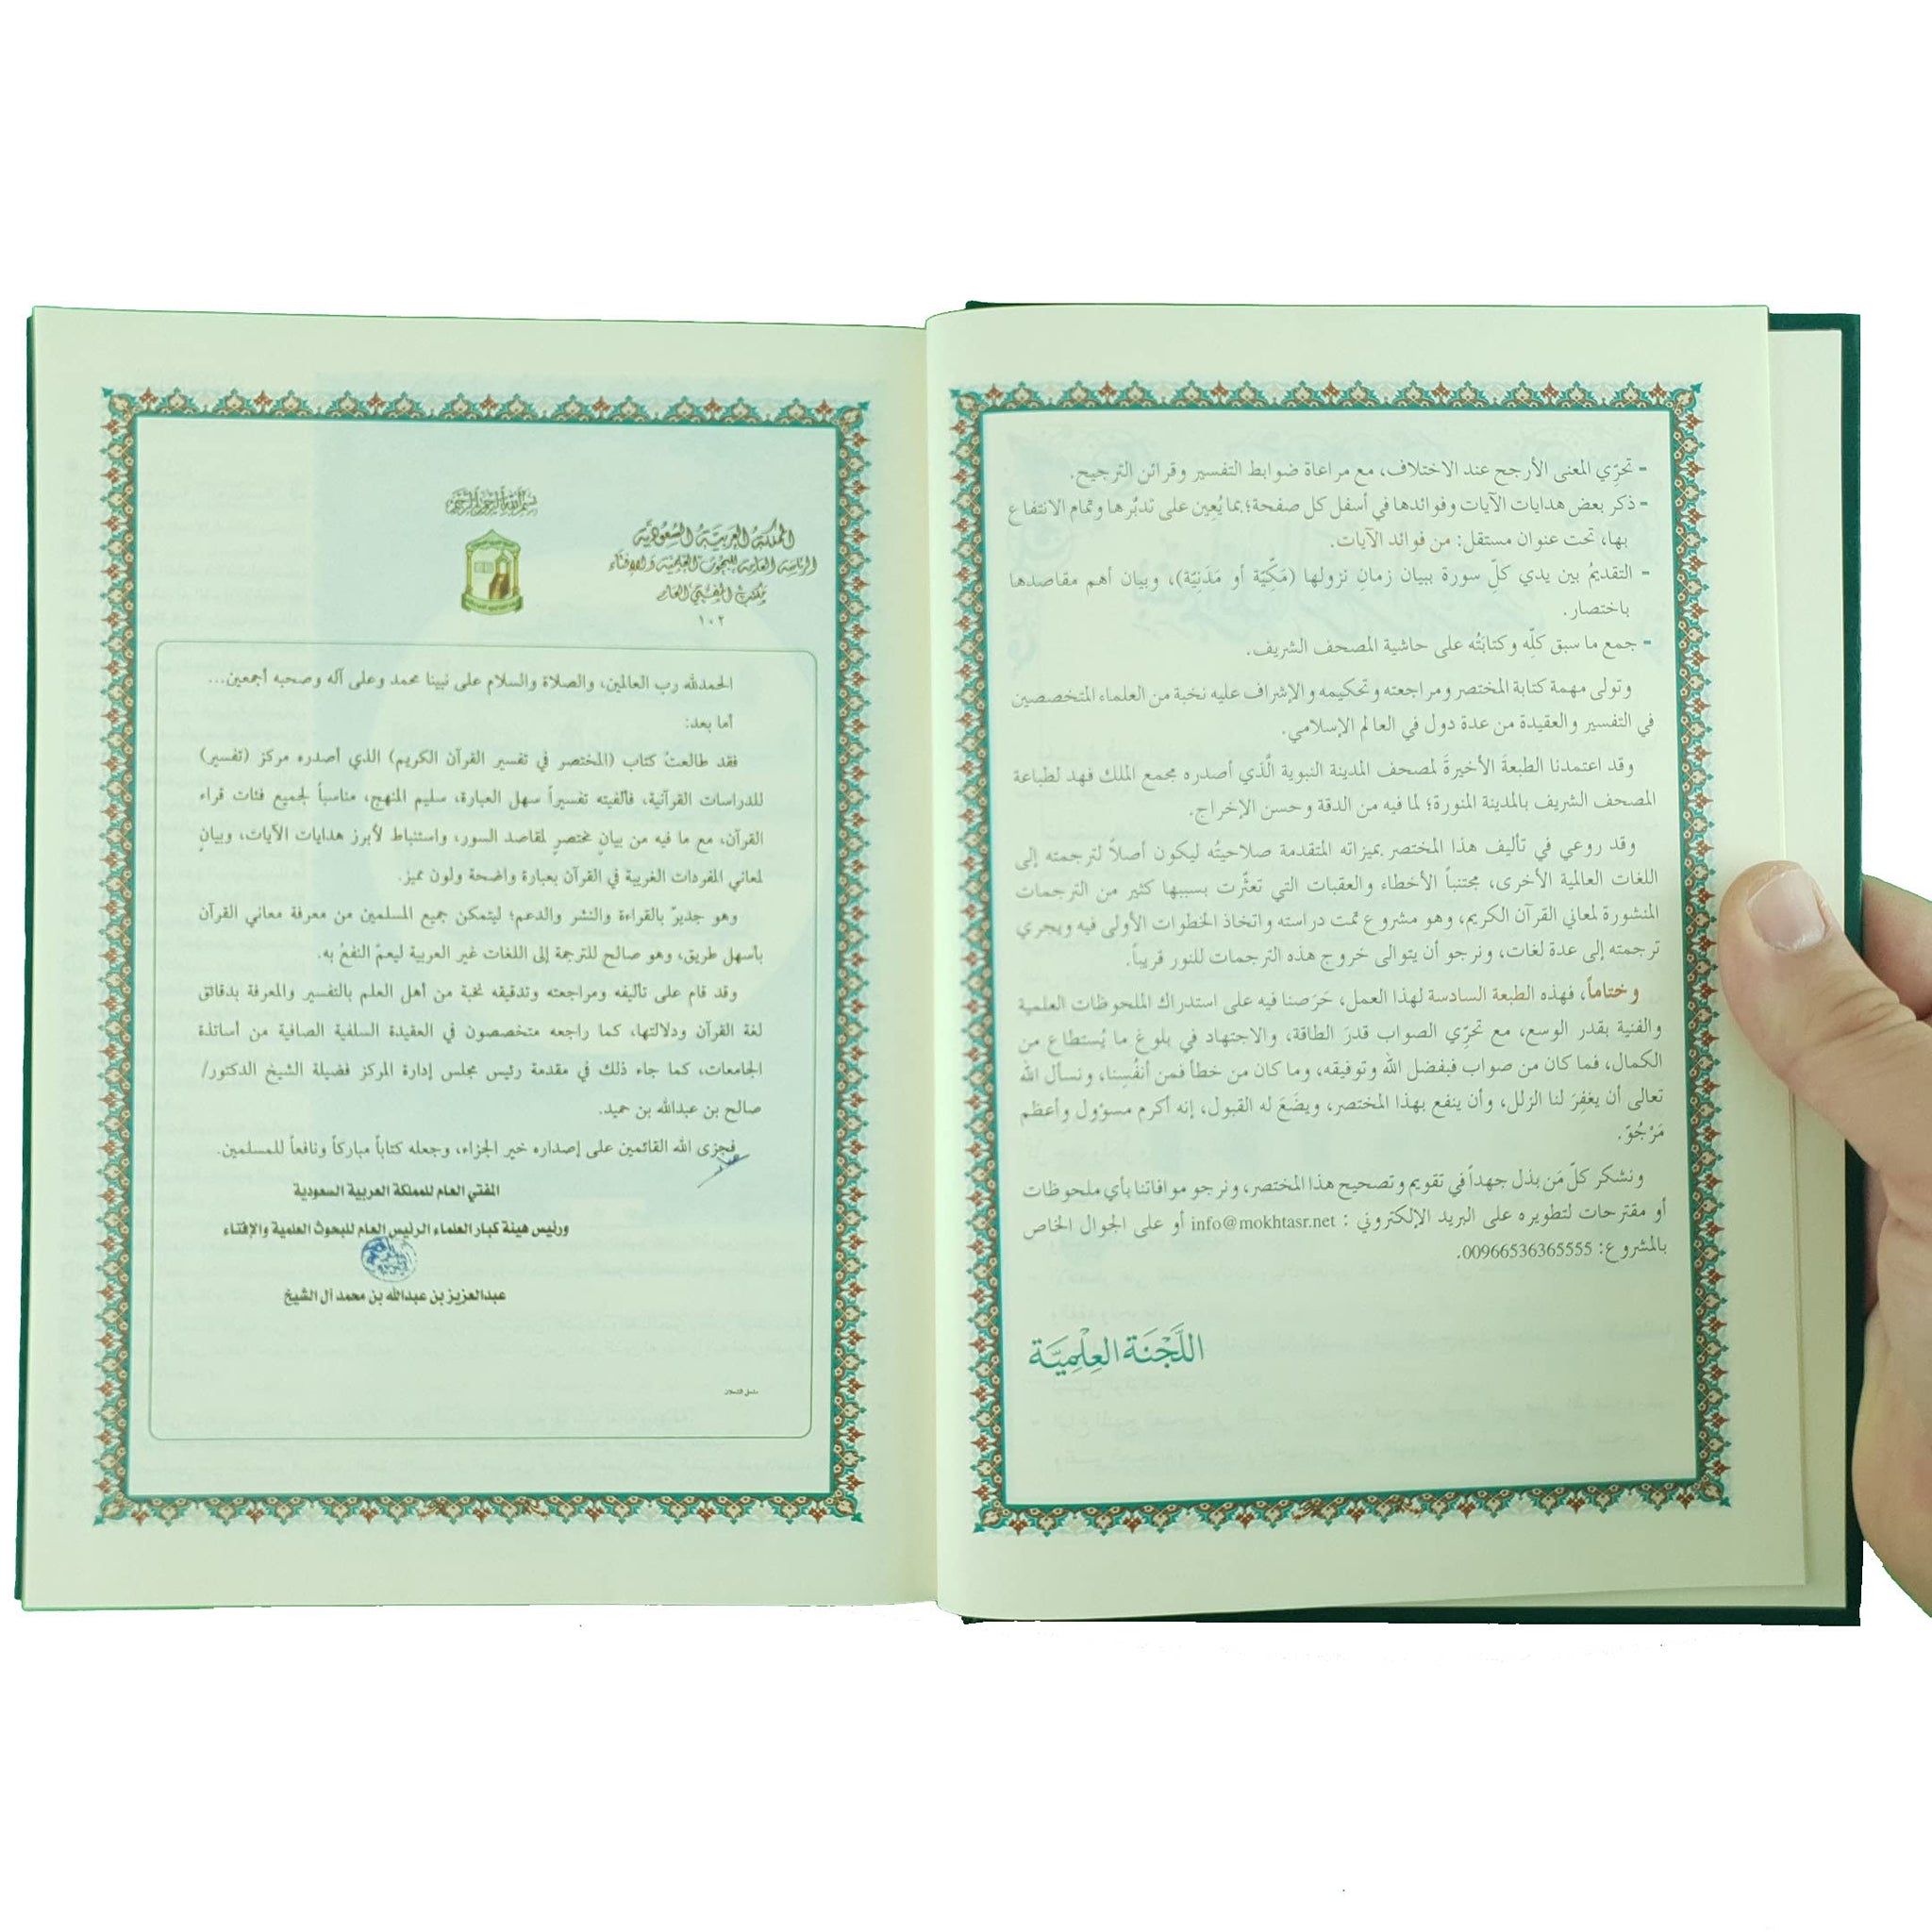 - تحرِّي المعنى الأرجح عند الاختلاف، مع مراعاة ضوابط التفسير وقرائن الترجيح.
- ذكر بعض هدايات الآيات وفوائدها في أسفل كل صفحة؛ بما يُعِين على تدبُّرها وتمام الانتفاع
بها، تحت عنوان مستقل: من فوائد الآيات.
- التقديمُ بين يدي كلِّ سورة ببيان زمانِ نزولها (مَكِّيّة أو مَدَنِيّة)، وبيان أهم مقاصدها
باختصار.
- جمع ما سبق كلِّه وكتابَتُه على حاشية المصحف الشريف.
وتولى مهمة كتابة المختصر ومراجعته وتحكيمه والإشراف عليه نخبة من العلماء المتخصصين
في التفسير والعقيدة من عدة دول في العالم الإسلامي.
وقد اعتمدنا الطبعةَ الأخيرةَ لمصحف المدينة النبوية الَّذي أصدره مجمع الملك فهد لطباعة
المصحف الشريف بالمدينة المنورة؛ لما فيه من الدقة وحسن الإخراج.
وقد روعي في تأليف هذا المختصر بميزاته المتقدمة صلاحيتُه ليكون أصلاً لترجمته إلى
اللغات العالمية الأخرى، مجتنباً الأخطاء والعقبات التي تعثَّرت بسببها كثير من الترجمات
المنشورة لمعاني القرآن الكريم، وهو مشروع تمت دراسته واتخاذ الخطوات الأولى فيه ويجري
ترجمته إلى عدة لغات، ونرجو أن يتوالى خروج هذه الترجمات للنور قريباً.
وختاماً، فهذه الطبعة السادسة لهذا العمل، حَرَصنا فيه على استدراك الملحوظات العلمية
والفنية بقدر الوسع، مع تحرِّي الصواب قدرَ الطاقة، والاجتهاد في بلوغ ما يُستطاع من
الكمال، فما كان من صواب فبفضل الله وتوفيقه، وما كان من خطأ فمن أنفُسِنا، ونسأل الله
تعالى أن يغفِرَ لنا الزلل، وأن ينفع بهذا المختصر، ويضَعَ له القبول، إنه أكرم مسؤول وأعظم
مَرْجُوّ.
ونشكر كلّ مَن بذل جهداً في تقويم وتصحيح هذا المختصر، ونرجو موافاتنا بأي ملحوظات
أو مقترحات لتطويره على البريد الإلكتروني : info@mokhtasr.net أو على الجوال الخاص
بالمشروع: 00966536365555.
اللَّجْنَة العِلْمِيَّة
بسم الله الرحمن الرحيم
المملكة العربية السعودية
الرئاسة العامة للبحوث العلمية والإفتاء
مكتب المفتي العام
١٠٢
الحمدلله رب العالمين، والصلاة والسلام على نبينا محمد وعلى آله وصحبه أجمعين...
أما بعد:
فقد طالعتُ كتاب (المختصر في تفسير القرآن الكريم) الذي أصدره مركز (تفسير)
للدراسات القرآنية، فألفيته تفسيراً سهل العبارة، سليم المنهج، مناسباً لجميع فئات قراء
القرآن، مع ما فيه من بيانٍ مختصرٍ لمقاصد السور، واستنباط لأبرز هدايات الآيات، وبيانٍ
لمعاني المفردات الغريبة في القرآن بعبارة واضحة ولون مميز.
وهو جديرٌ بالقراءة والنشر والدعم؛ ليتمكن جميع المسلمين من معرفة معاني القرآن
بأسهل طريق، وهو صالح للترجمة إلى اللغات غير العربية ليعمّ النفعُ به.
وقد قام على تأليفه ومراجعته وتدقيقه نخبة من أهل العلم بالتفسير والمعرفة بدقائق
لغة القرآن ودلالتها، كما راجعه متخصصون في العقيدة السلفية الصافية من أساتذة
الجامعات، كما جاء ذلك في مقدمة رئيس مجلس إدارة المركز فضيلة الشيخ الدكتور/
صالح بن عبدالله بن حميد.
فجزى الله القائمين على إصداره خير الجزاء، وجعله كتاباً مباركاً ونافعاً للمسلمين.
المفتي العام للمملكة العربية السعودية
ورئيس هيئة كبار العلماء الرئيس العام للبحوث العلمية والإفتاء
عبدالعزيز بن عبدالله بن محمد آل الشيخ